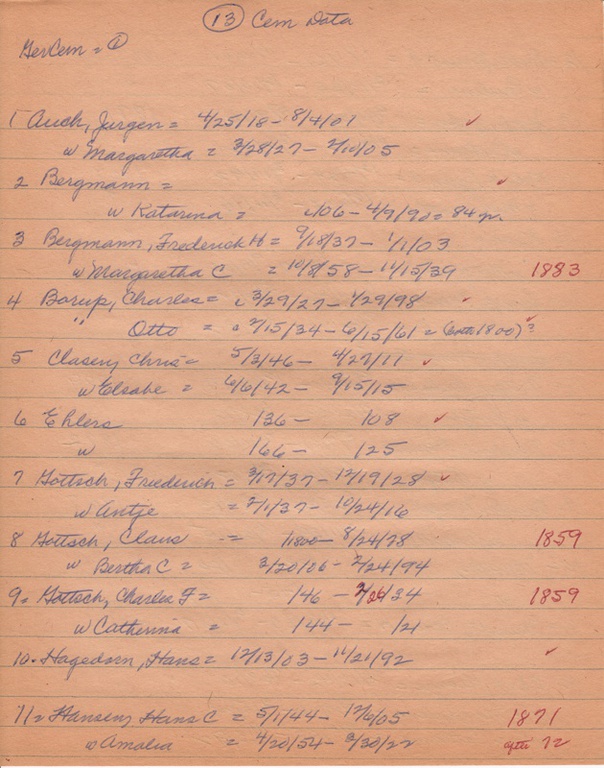 13 Cem Data
GerCem = 1
1 Auch, Jurgen = 4/25/18 - 8/4/01 ✓
w Margaretha = 3/28/27 - 2/10/05
2 Bergmann = ✓
w Katarina = /06 - 4/9/90 = 84 yr.
3 Bergmann, Frederick H = 9/18/37 - 1/1/03
w Margaretha C = 10/8/58 - 11/15/39 1883
4 Borup, Charles = c 3/29/27 - 1/29/98 ✓
" Otto = c 2/15/34 - 6/15/61 = (both 1800)? ✓
5 Clasen, Chris = 5/3/46 - 4/27/11 ✓
w Elsabe = 6/6/42 - 9/15/15
6 Ehlers 136 - 108 ✓
w 166 - 125
7 Gottsch, Friederich = 3/17/37 - 12/19/28 ✓
w Antje = 2/1/37 - 10/24/16
8 Gottsch, Claus = 1800 - 8/24/78 1859
w Bertha C = 3/20/06 - 2/24/94
9 = Gottsch, Charles F = 146 - 2/26/34 1859
w Catherina = 144 - 121
10. Hagedorn, Hans = 12/13/03 - 11/21/92 ✓
11 = Hansen, Hans C = 5/1/44 - 12/6/05 1871
w Amalia = 4/20/54 - 3/30/22 after 72